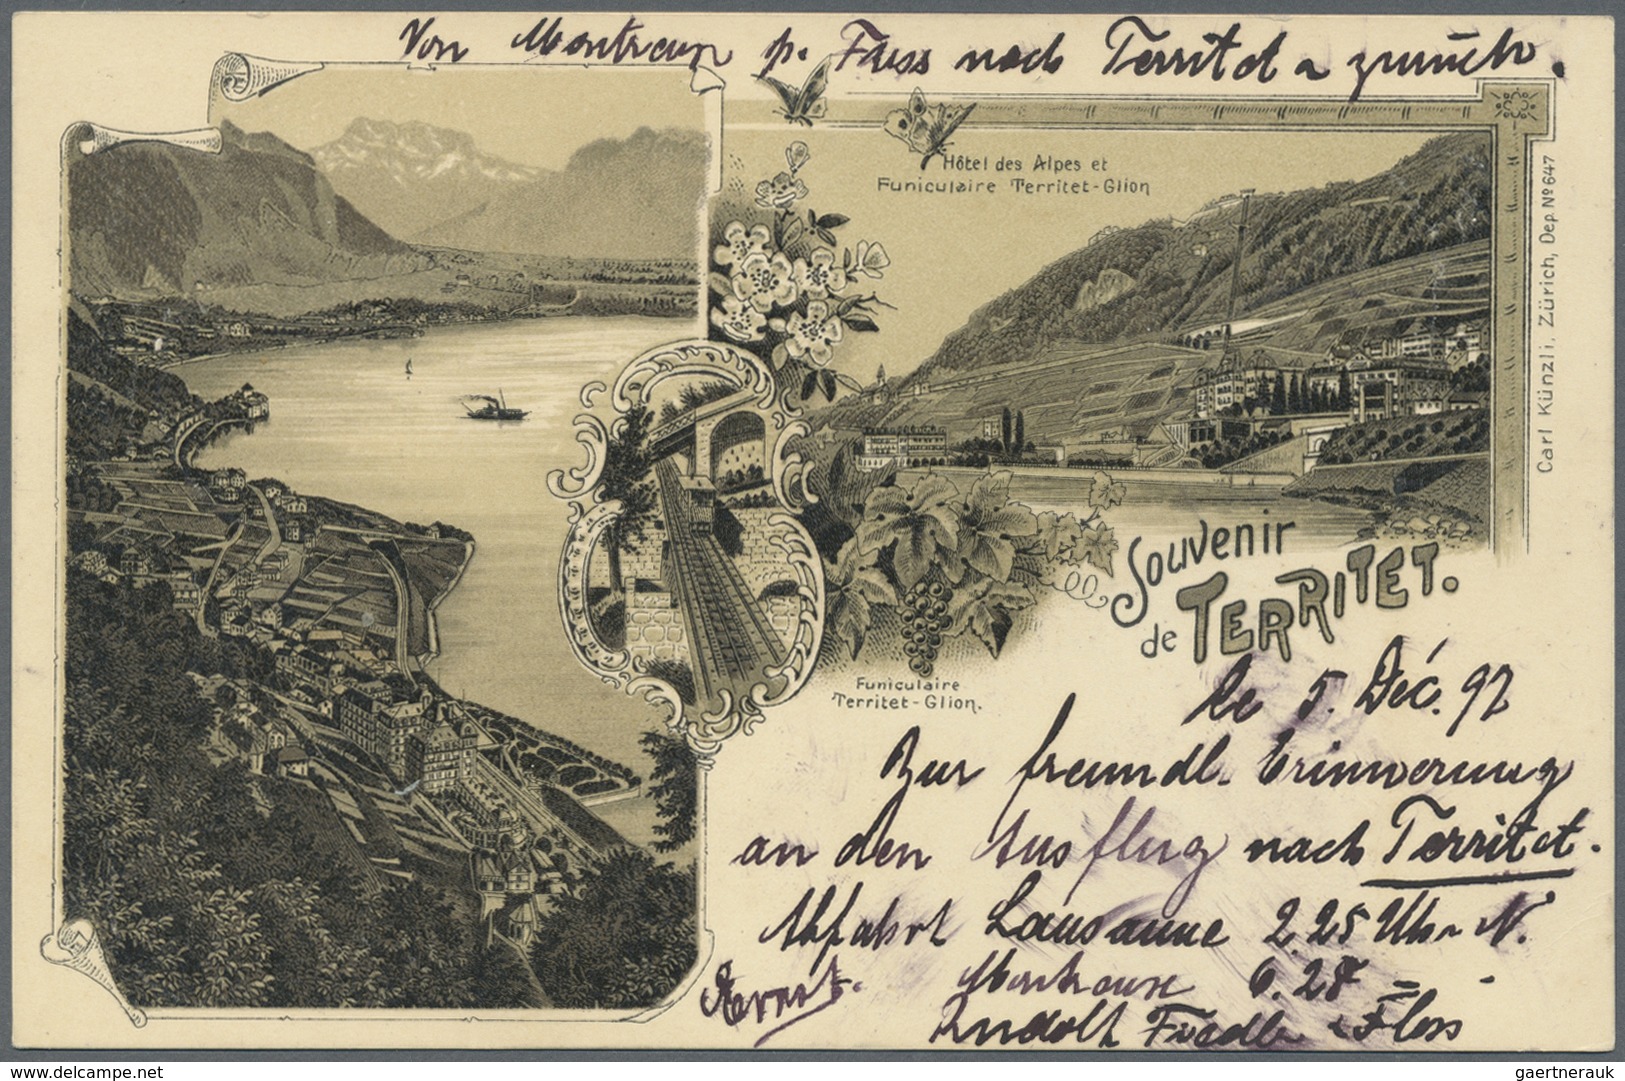 Von Montreux p. Fuss nach Territet & zurück.
Hôtel des Alpes et
Funiculaire Territet-Glion
Carl Künzli, Zürich, Dep. Nº 647
Souvenir
de TERRITET.
Funiculaire
Territet-Glion.
le 5. Déc. 97
Zur freundl. Erinnerung
an den Ausflug nach Territet.
Abfahrt Lausanne 2 25 Uhr N.
Ernst. Montreux 6.28 =
Rudolf
delcampe.net
gaertnerauk